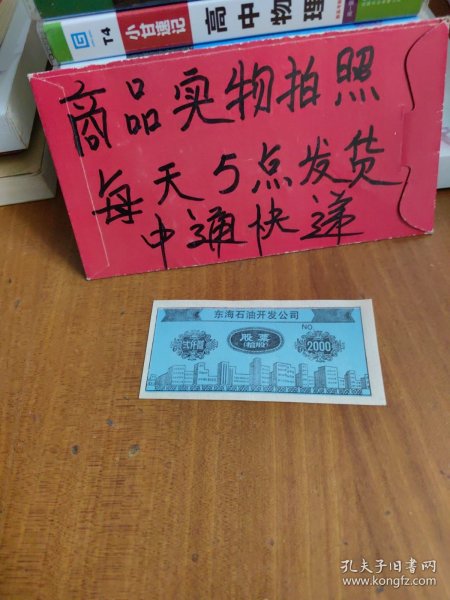 T4 小甘速记 高中物理
商品实物拍照
每天5点发货
中通快递
东海石油开发公司
NO.
贰仟圆 股票 2000
(精股)
孔夫子旧书网
www.kongfz.com